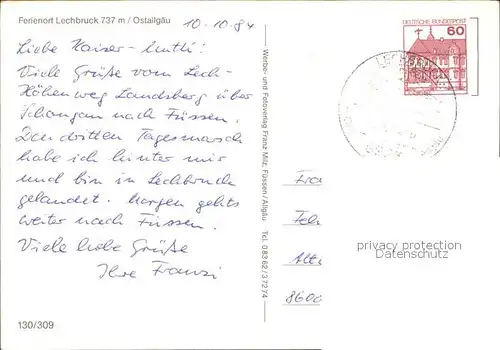 Ferienort Lechbruck 737 m / Ostallgäu
10.10.84
Liebe Kaiser-Mutti!
Viele Grüße vom Lech-
Höhenweg Landsberg über
Schongau nach Füssen.
Den dritten Tagesmarsch
habe ich hinter mir
und bin in Lechbruck
gelandet. Morgen gehts
weiter nach Füssen.
Viele liebe Grüße
Ihre Franzi
130/309
Werbe- und Fotoverlag Franz Milz, Füssen/Allgäu Tel. 08362/37274
DEUTSCHE BUNDESPOST
60
LECHBRUCK
Fra
8600
privacy protection
Datenschutz